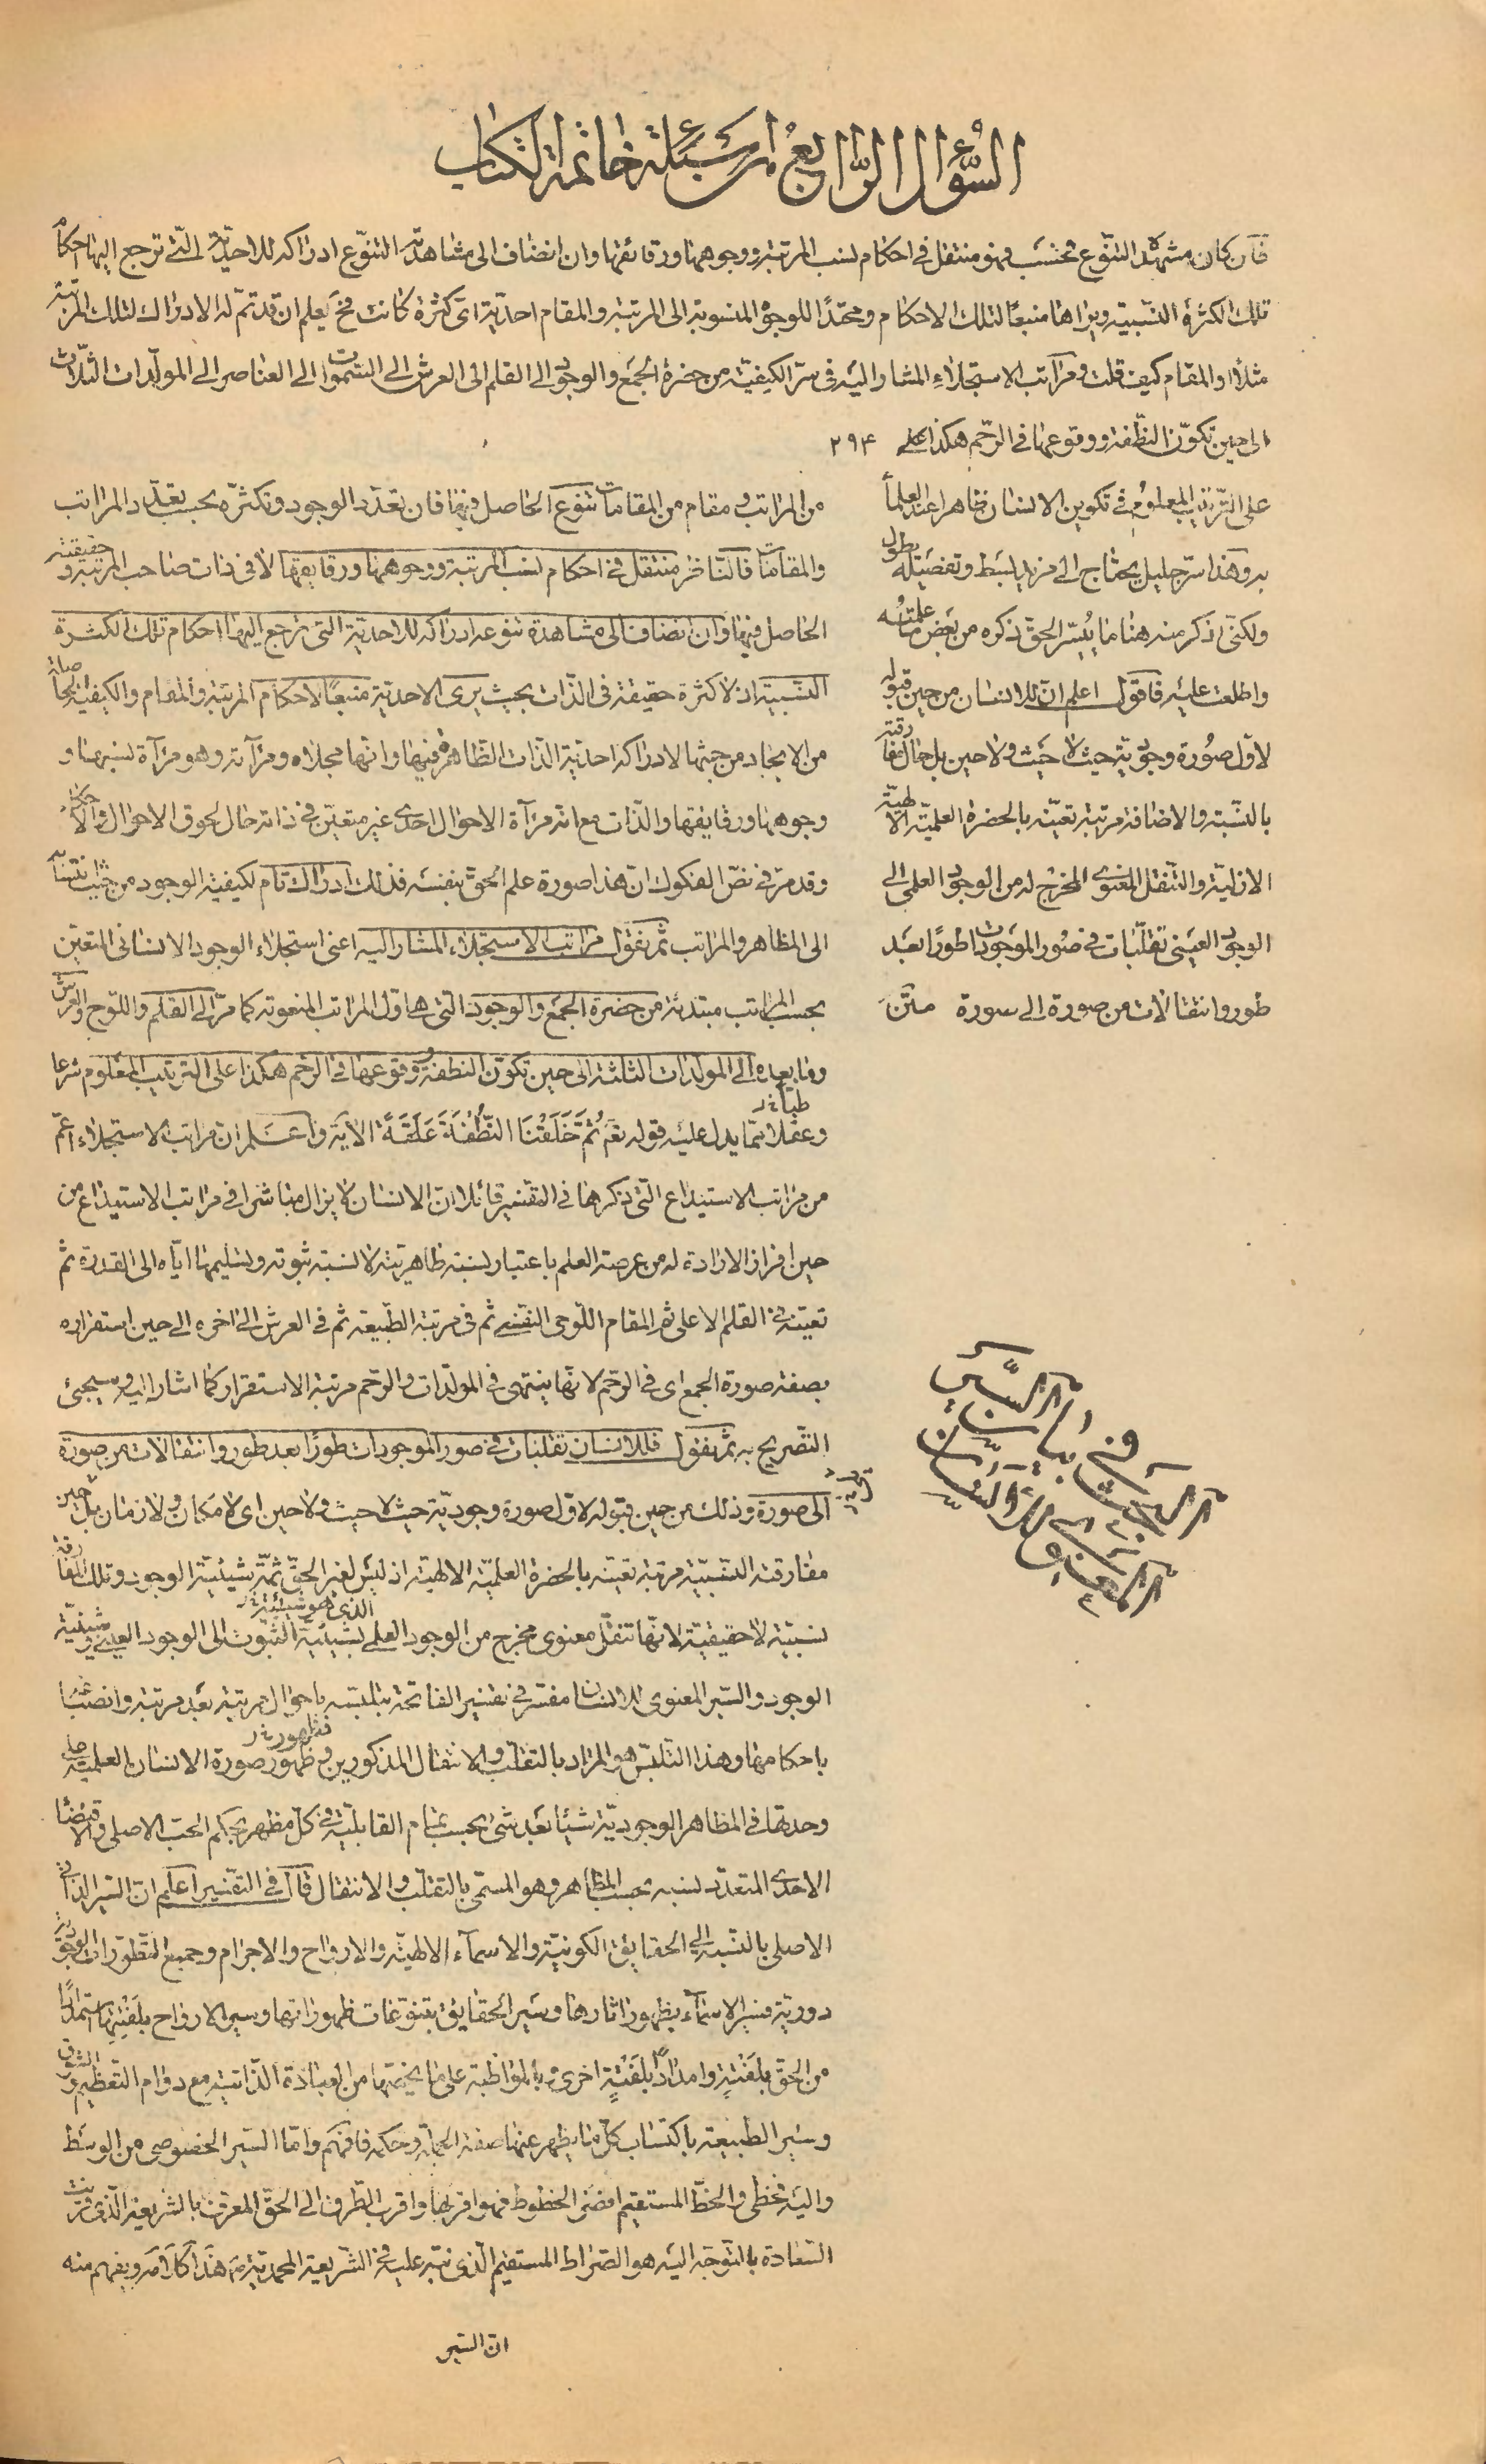 السّؤال الرّابع من اسئلة خاتمة الكتاب
فان كان مشهده التنّوع فحسب فهو منتقل فى احكام نسب المرتبة ووجوهها ورقائقها وان انضاف الى مشاهدة التنّوع ادراكه للاحديّة الّتى ترجع اليها احكام
تلك الكثرة النسّبية ويراها منبعًا لتلك الاحكام ومحتدًا للوجوه المنسوبة الى المرتبة والمقام احديّة اىّ كثرة كانت فح يعلم ان قد تمّ له الادراك لتلك المرتبة
مثلاً او المقام كيف قلت ومراتب الاستجلاء المشار اليه فى سرّ الكيفيّة من حضرة الجمع والوجود الى القلم الى العرش الى السّموات الى العناصر الى المولّدات الثلاث
الى حين تكوّن النطّفة ووقوعها فى الرّحم هكذا على ٢٩۴
على التّرتيب المعلوم فى تكوين الانسان ظاهرا عند العلمأ
به وهذا سرّ جليل يحتاج الى مزيد بسط وتفصيله يطول
ولكنّى اذكر منه هنا ما يُيسّر الحقّ ذكره من بعض ما علمته
واطلعت عليه فاقول اعلم انّ للانسان من حين قبوله
لاوّل صُورة وجوديّة حيث لا حيث ولا حين بل حال مفارقته
بالنسّبة والاضافة مرتبة تعيّنه بالحضرة العلميّة الالهيّة
الازليّة والتنقّل المعنوى المخرج له من الوجود العلمى الى
الوجود العينى تقلّبات فى صُور الموجودات طورًا بعد
طور وانتقالات من صورة الى سورة متن
من المراتب ومقام من المقامات تنوع الحاصل فيها فان تعدّد الوجود وتكثرّه بحسب تعدّد المراتب
والمقامات فالناظر منتقل فى احكام نسب المرتبة ووجوهها ورقايقها لا فى ذات صاحب المرتبة وحقيقته
الحاصل فيها وان انضاف الى مشاهدة تنوعه ادراكه للاحديّة التى ترجع اليها احكام تلك الكثرة
النسّبية اذ لا كثرة حقيقة فى الذّات بحيث يرى الاحديّة منبعًا لاحكام المرتبة والمقام والكيفيّة الحاصلة
من الايجاد من حيثها لادراكه احديّة الذّات الظّاهرة فيها وانّها مجلاه ومرآته وهو مرآة لنسبها و
وجوهها ورقايقها والذّات مع انّه مرآة الاحوال احدى غير متعيّن فى ذاته حال لحوق الاحوال والاحكام
وقد مرّ فى نصّ الفكوك انّ هذا صورة علم الحقّ بنفسه فذلك ادراك تام لكيفيّة الوجود من حيث انتسابه
الى المظاهر والمراتب ثمّ نقول مراتب الاستجلاء المشار اليه اعنى استجلاء الوجود الانسانى المتعيّن
بحسب المراتب مبتدئة من حضرة الجمع والوجود التى هى اوّل المراتب المنعوتة كما مرّ الى القلم واللّوح والعرش
وما بعده الى المولدات الثلثة الى حين تكوّن النطفة ووقوعها فى الرّحم هكذا على الترتيب المعلوم شرعا
طبّا خ ر
وعقلا ممّا يدل عليه قوله تعَ ثُمَّ خَلَقْنَا النُّطْفَةَ عَلَقَةً الآية واعلم انّ مراتب الاستجلاء اعمّ
من مراتب الاستيداع التى ذكرها فى التفسير قائلا انّ الانسان لا يزال مباشرا فى مراتب الاستيداع من
حين افراز الارادة له من عرصة العلم باعتبار نسبة ظاهريّته لا نسبة ثبوته وتسليمها ايّاه الى القدرة ثم
تعيّنه فى القلم الاعلى ثم المقام اللّوحى النفسى ثم فى مرتبة الطّبيعة ثم فى العرش الى اخره الى حين استقراره
بصفة صورة الجمع اى فى الرّحم لانّها ينتهى فى المولّدات والرّحم مرتبة الاستقرار كما اشار اليه وسيجئ
التصّريح به ثمّ نقول فللانسان تقلبات فى صور الموجودات طورًا بعد طور وانتقالات من صورة
الى صورة وذلك من حين قبوله لاوّل صورة وجوديّة حيث لا حيث ولا حين اى لا مكان ولا زمان بل حين
مفارقته النسّبيّة مرتبة تعيّنه بالحضرة العلميّة الالهيّة اذ ليس لغير الحقّ ثمّة شيئيّة الوجود وتلك المفارقة
الذى هو شيئيّة خ ر
نسبيّة لا حقيقيّة لانّها تنقّل معنوى مخرج من الوجود العلمى بشيئيّة الثبوت الى الوجود العينى وشيئيّة
الوجود والسّير المعنوى للانسان مفسّر فى تفسير الفاتحة بتلبّسه باحوال مرتبة بعد مرتبة وانصباغه
فظهور خ ر
باحكامها وهذا التّلبّس هو المراد بالتقلّب والانتقال المذكورين وظهور صورة الانسان العلميّة
وحدتها فى المظاهر الوجوديّة شيئا بعد شئ بحسب تمام القابليّة فى كلّ مظهر بحكم الحبّ الاصلى والاقتضا
الاحدى المتعدّد نسبه بحسب المظاهر وهو المسمّى بالتقلّب والانتقال قال فى التفسير اعلم انّ السّير الذاتى
الاصلى بالنسّبة الى الحقايق الكونيّة والاسمآء الالهيّة والارواح والاجرام وجميع التطّورات الوجوديّة
دوريّة فسير الاسمآء بظهور اثارها وسَير الحقايق بتنوّعات ظهوراتها وسير الارواح بلَفْتِها استمدادًا
من الحقّ بلَفْتةٍ وامدادًا بلَفْتةٍ اخرى وبالمواظبة على ما يخصّها من العبادة الذّاتية مع دوام التعظيم والشوق
وسَير الطبيعة باكتساب كلّ ما يظهر عنها صفة الجملة وحكمه فافهم وامّا السّير الخصوصى من الوسط
واليه فخطى والخطّ المستقيم اقصر الخطوط فهو اقربها واقرب الطّرف الى الحقّ المعرّف بالشّريعة الّذى قرنت
السّعادة بالتّوجّه اليه هو الصّراط المستقيم الّذى نبّه عليه فى الشّريعة المحمديّة هذا كلامه ويفهم منه
انّ السّير